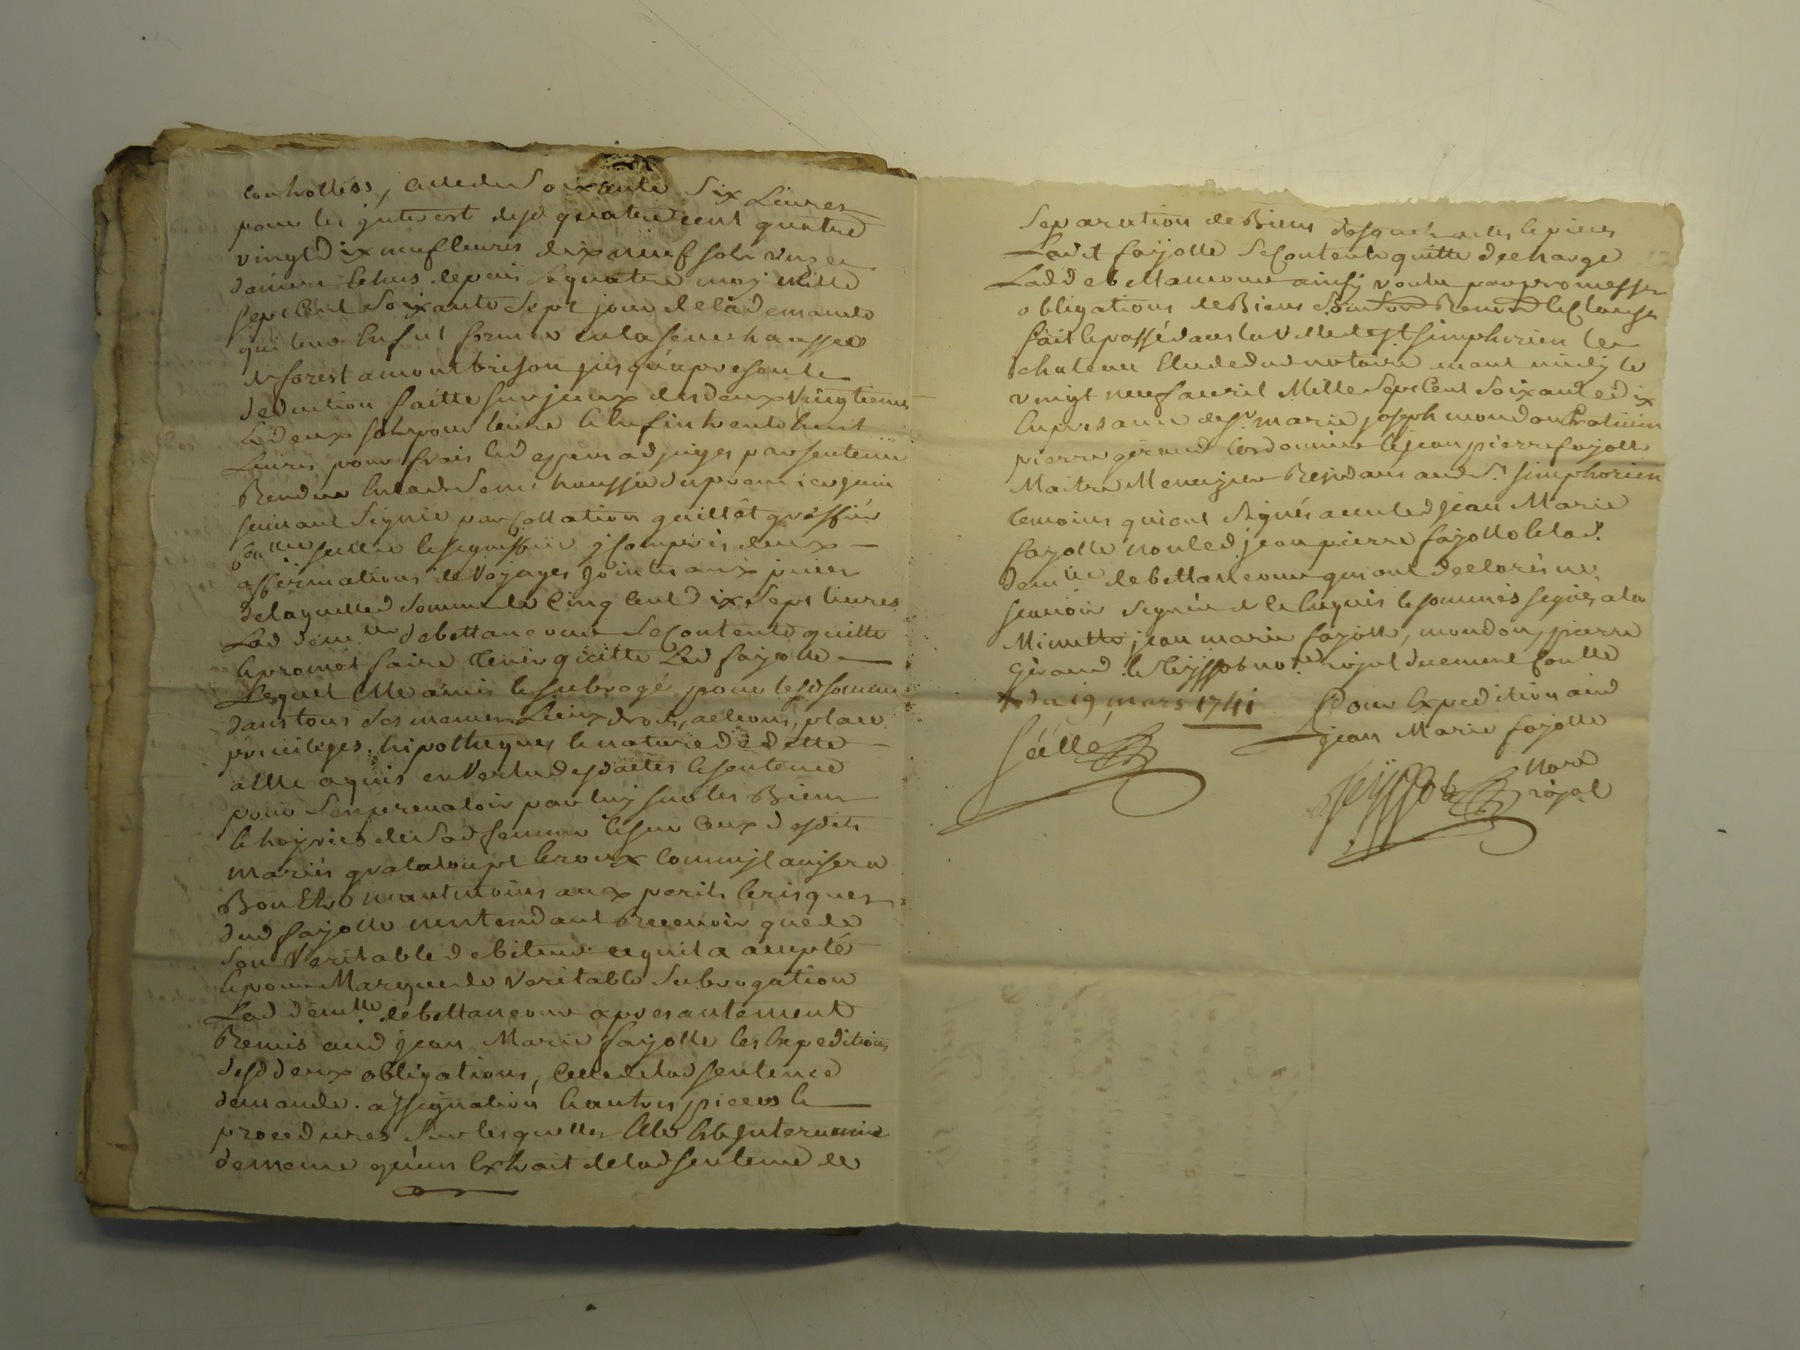 controlléss, celle de Soixante Six Livres
pour les jnterest desd quatre cent quatre
vingt dix neuf livres dix neuf sols onze
deniers Echus depuis le quatre may Mille
sept Cent Soixante Sept jour de la demande
qui leur En fut formée en la senechaussée
de forest a montbrison jusqu'a presente
deduction faitte sur jceux des deux vingtiemes
Et deux sols pour livre Et Enfin trente huit
Livres pour frais Et depens adjuges par sentence
Rendue En lad. Senechaussée du premier juin
suivant Signée par Collation guillot greffier
Conlle scellée Et signiffiée y compris deux
affirmations de Voyages Jointes aux pieces
de laquelle d. somme de Cinq Cent dix Sept livres
Lad demlle debettancour Se Contente quitte
Et promet faire tenir quitte Led fajolle
Lequel Elle a mis Et subrogé pour lesd sommes
dans tous Ses memes Lieux, droits, actions, place
privileges, hipotheques Et nature de dette
a Elle aquis en Vertu desd actes Et sentence
pour S'en prevaloir par luy sur les Biens
Et hoyries de Sad femme Et sur Ceux desdts
mariés grataloup et Croux Comm'jl avisera
Bon Etre neantmoins aux perils Et risques
dud fajolle n'entendant Recevoir que de
Son Veritable debiteur ce qu'il a accepté
Et pour Marque de Veritable Subrogation
Lad demlle debettancour a presentement
Remis aud jean Marie fajolle les Expeditions
desd deux obligations, Celle de lad sentence
demande. assignation Et autres pieces Et
procedures Sur lesquelles Elle Est Intervenue
de meme qu'un Extrait de lad sentence de
Separation de Biens desquelles Et pieces
Ledit fajolle Se Contente quitte decharge
Lad debettancour ainsy voulu par promesses
obligations de Biens Soumis Renond Et Clauses
fait Et passé dans la Ville de St Simphorien le
chateau Etude du notaire avant midy le
vingt neuf avril Mille Sept Cent Soixante dix
En presance de Sr marie joseph mondon Praticien
pierre geraud Cordonnier Et jean pierre fajolle
Maitre Menuzier Residans aud St. Simphorien
temoins qui ont Signés avec led jean Marie
fajolle non led. jean pierre fajolle Et lad.
demlle debettancour qui ont declarés ne
scavoir Signer de ce Enquis Et sommés signés a la
Minutte jean marie fajolle, mondon, pierre
Geraud Et Teyssot nore. rojal duement Conlle
du 19 mars 1741
Pour Expedition aud
jean Marie fajolle
Scellé
Teyssot nore
rojal